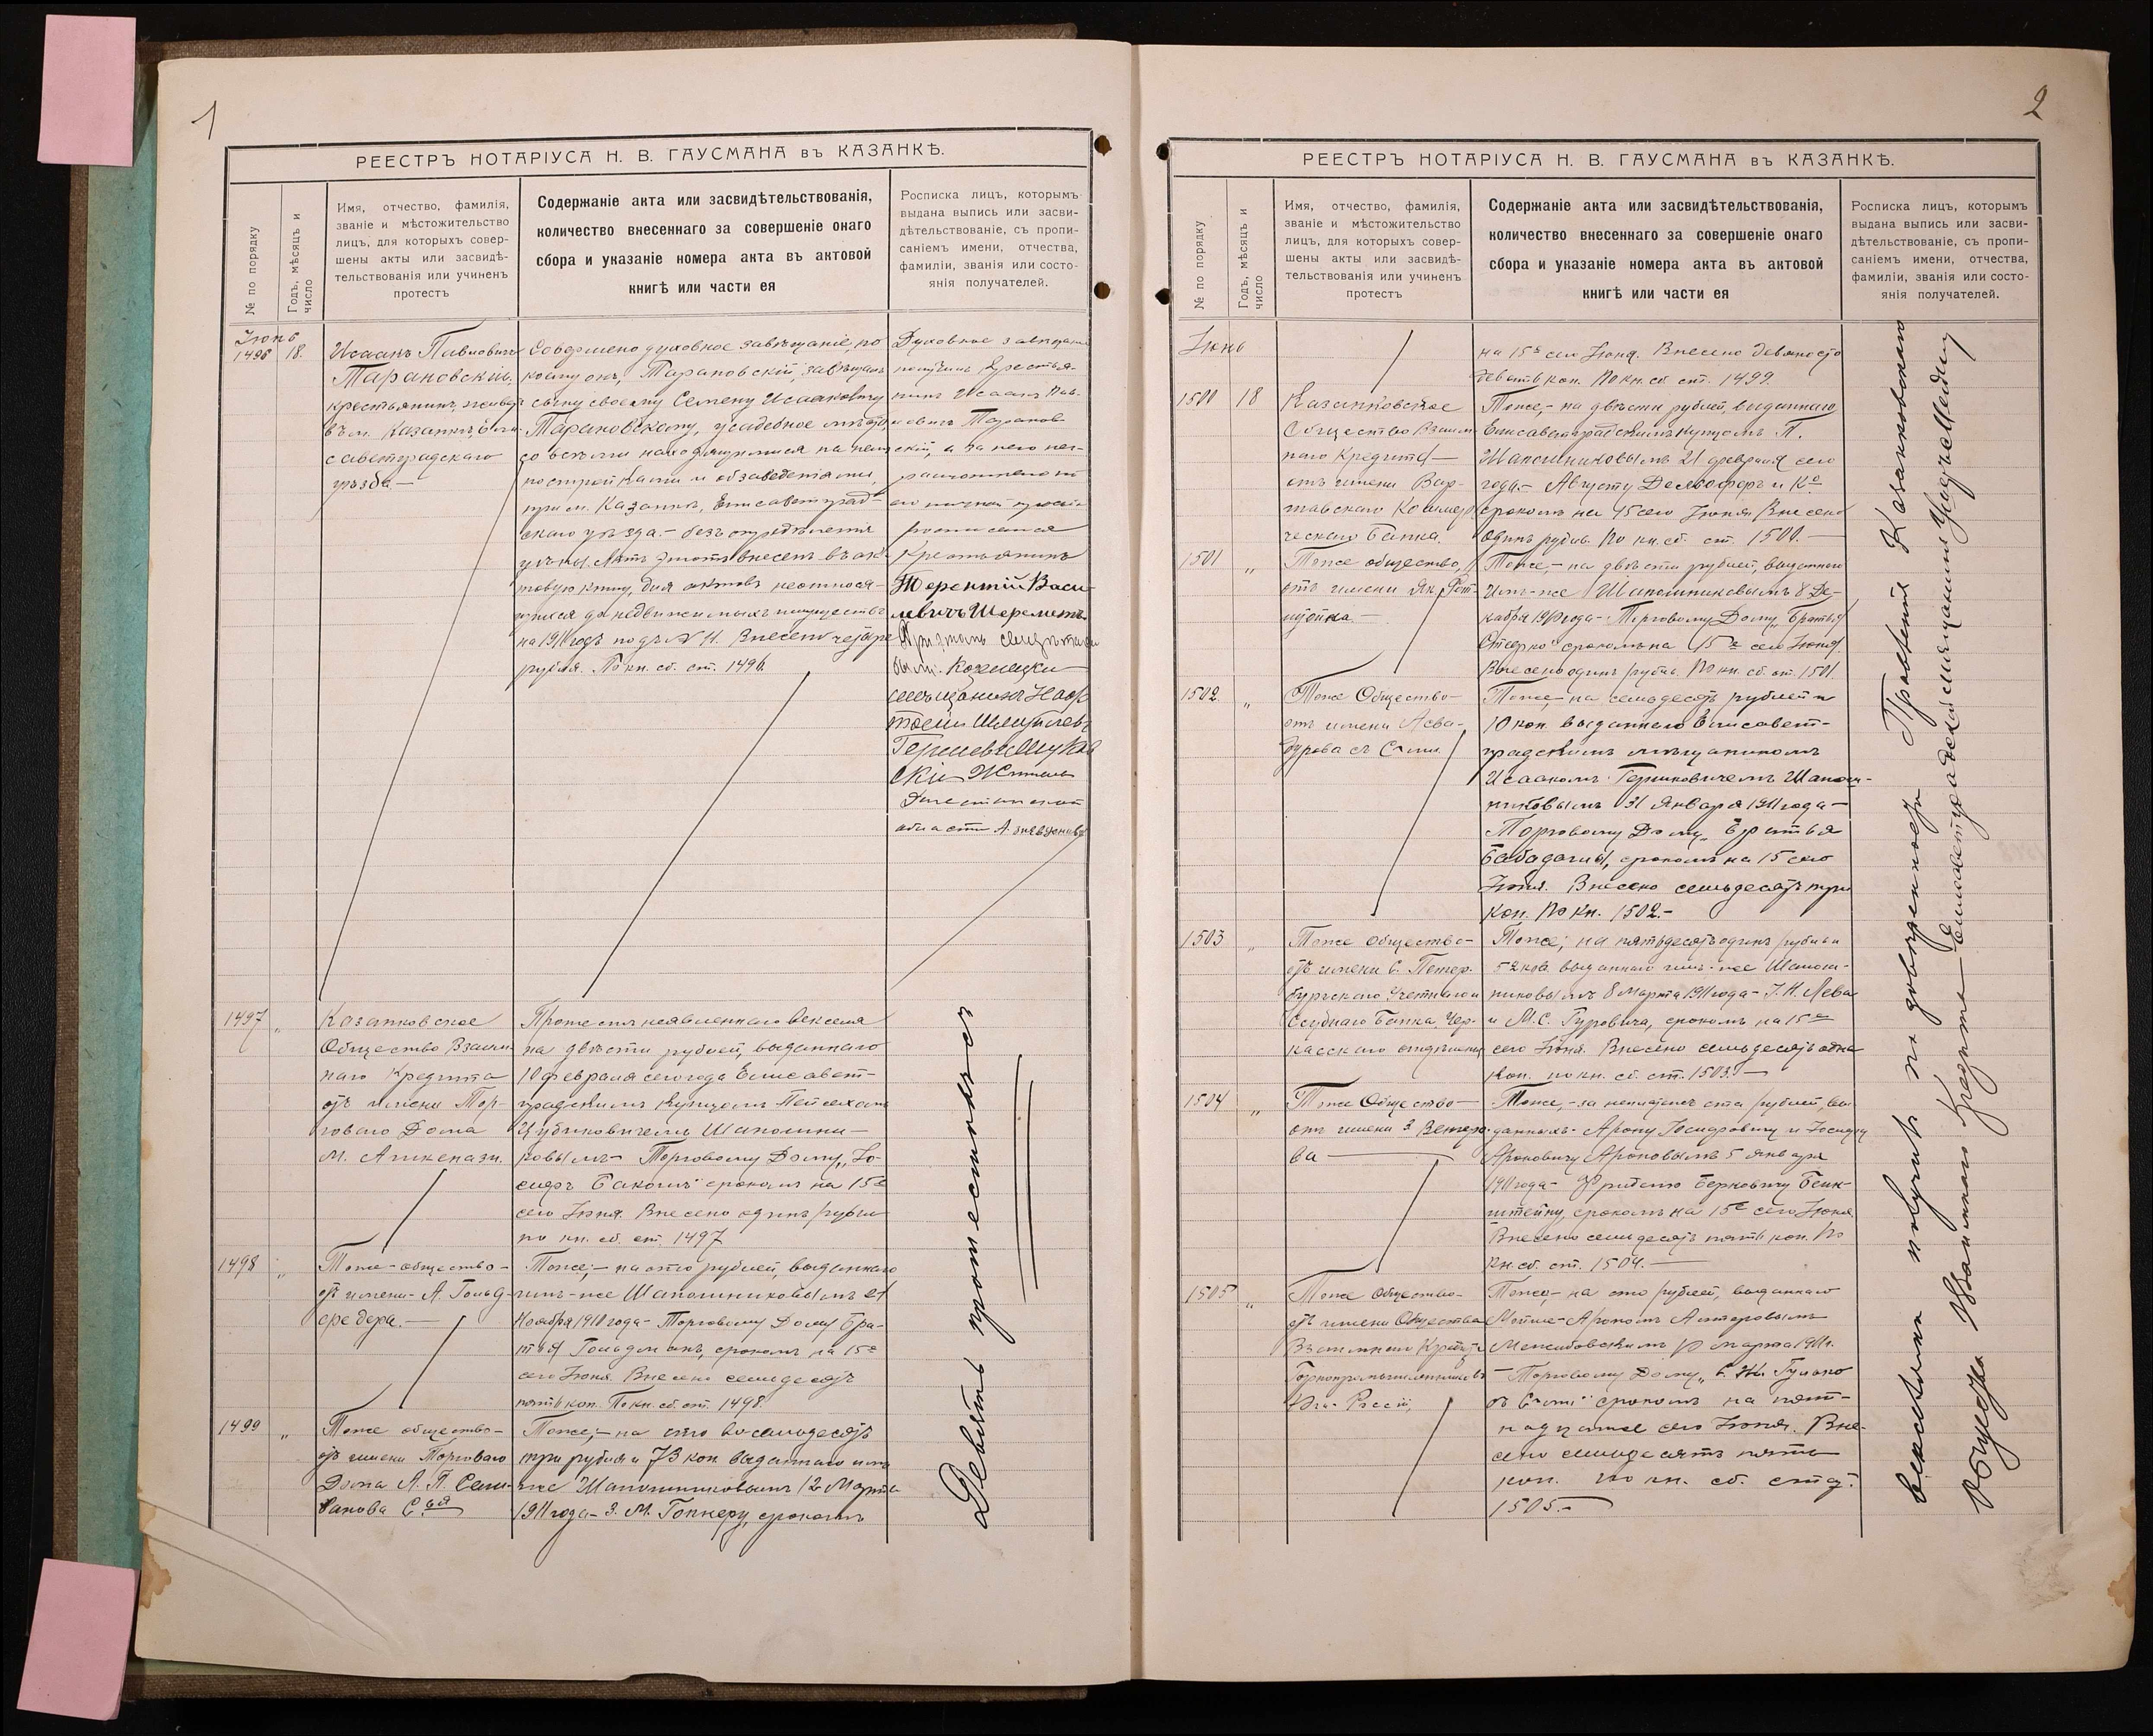 1
РЕЕСТРЪ НОТАРІУСА Н. В. ГАУСМАНА въ КАЗАНКѢ.
№ по порядку
Годъ, мѣсяцъ и
число
Имя, отчество, фамилія,
званіе и мѣстожительство
лицъ, для которыхъ совер-
шены акты или засвидѣ-
тельствованія или учиненъ
протестъ
Содержаніе акта или засвидѣтельствованія,
количество внесеннаго за совершеніе онаго
сбора и указаніе номера акта въ актовой
книгѣ или части ея
Росписка лицъ, которымъ
выдана выпись или засви-
дѣтельствованіе, съ пропи-
саніемъ имени, отчества,
фамиліи, званія или состо-
янія получателей.
Іюнь
1496 18.
Исаакъ Павловичъ
Тарановскій,
крестьянинъ, живет
въ м. Казанкѣ, Ели-
саветградскаго
уѣзда.—
Совершено духовное завѣщаніе, по
коему онъ, Тарановскій, завѣщалъ
сыну своему Семену Исааковичу
Тарановскому, усадебное мѣсто,
со всѣми находящимися на немъ
постройками и обзаведеніями,
при м. Казанкѣ, Елисаветград-
скаго уѣзда — безъ опредѣленія
цѣны. Актъ этотъ внесенъ въ ак-
товую книгу, для актовъ неотнося-
щихся до недвижимыхъ имуществъ
на 1911 годъ подъ № 11. Внесено четыре
рубля. По кн. сб. ст. 1496.
Духовное завѣщаніе
получилъ крестья-
нинъ Исаакъ Пав-
ловичъ Таранов
скій, а за него не-
грамотнаго по
его личной просьбѣ
росписался
крестьянинъ
Терентій Васи-
льевичъ Шереметъ
1497 "
Казанковское
Общество Взаим-
наго Кредита
отъ имени Тор-
говаго Дома
М. Ашкенази.
Протестъ неявленнаго векселя
на двѣсти рублей, выданнаго
10 февраля сего года Елисавет-
градскимъ купцомъ Пейсахомъ
Шапошни-
ковымъ — Торговому Дому „Іо-
сифъ Бакогъ" срокомъ на 15е
сего Іюня. Внесено одинъ рубль
по кн. сб. ст. 1497
1498 "
Тоже — общество —
отъ имени — А. Гольд-
средера.—
Тоже, — на сто рублей, выданнаго
имъ-же Шапошниковымъ 21
Ноября 1910 года — Торговому Дому Бра-
тья Гольдманъ, срокомъ на 15е
сего Іюня. Внесено семьдесятъ
пять коп. По кн. сб. ст. 1498.
1499 "
Тоже общество —
отъ имени Торговаго
Дома А. П. Сели-
ванова С-вья
Тоже, — на сто восемьдесятъ
три рубля и 73 коп. выданнаго имъ
же Шапошниковымъ 12 Марта
1911 года — З. М. Гопперу, срокомъ
Девять протестныхъ
2
РЕЕСТРЪ НОТАРІУСА Н. В. ГАУСМАНА въ КАЗАНКѢ.
№ по порядку
Годъ, мѣсяцъ и
число
Имя, отчество, фамилія,
званіе и мѣстожительство
лицъ, для которыхъ совер-
шены акты или засвидѣ-
тельствованія или учиненъ
протестъ
Содержаніе акта или засвидѣтельствованія,
количество внесеннаго за совершеніе онаго
сбора и указаніе номера акта въ актовой
книгѣ или части ея
Росписка лицъ, которымъ
выдана выпись или засви-
дѣтельствованіе, съ пропи-
саніемъ имени, отчества,
фамиліи, званія или состо-
янія получателей.
Іюнь
на 15е сего Іюня. Внесено девяносто
девять коп. По кн. сб. ст. 1499.
1500 18
Казанковское
Общество Взаим-
наго Кредита —
отъ имени Вар-
шавскаго Коммер
ческаго Банка.
Тоже, — на двѣсти рублей, выданнаго
Елисаветградскимъ купцомъ П.
Шапошниковымъ 21 февраля сего
года — Августу и Ко
срокомъ на 15 сего Іюня. Внесено
одинъ рубль. По кн. сб. ст. 1500.—
1501 "
Тоже общество,
отъ имени Як. Рот-
штейна.—
Тоже, — на двѣсти рублей, выданнаго
имъ-же Шапошниковымъ 8 Де-
кабря 1910 года — Торговому Дому „Братья
срокомъ на 15е сего Іюня.
Внесено одинъ рубль. По кн. сб. ст. 1501.
1502. "
Тоже Общество —
отъ имени Асва-
дурова съ С-ми.
Тоже, — на семьдесятъ рублей и
10 коп. выданнаго Елисавет-
градскимъ мѣщаниномъ
Исаакомъ Шапош-
никовымъ 31 Января 1911 года —
Торговому Дому „Братья
Бабаджанъ, срокомъ на 15 сего
Іюня. Внесено семьдесятъ три
коп. По кн. 1502.—
1503 "
Тоже Общество —
отъ имени С. Петер-
бургскаго Учетнаго и
Ссуднаго Банка, Чер-
касскаго отдѣленія
Тоже; на пятьдесятъ одинъ рубль и
52 коп. выданнаго имъ-же Шапош-
никовымъ 8 Марта 1911 года — І. Н. Лева
и М. С. Гуровича, срокомъ на 15е
сего Іюня. Внесено семьдесятъ одна
коп. по кн. сб. ст. 1503.—
1504 "
Тоже Общество —
отъ имени З. Венгеро-
ва —
Тоже, — за неплатежъ ста рублей, вы-
данныхъ — Арону Іосифовичу и Іосифу
Ароновичу Ароновымъ 5 Января
1911 года — Берковичу Бенк-
штейну, срокомъ на 15е сего Іюня.
Внесено семьдесятъ пять коп. По
кн. сб. ст. 1504.—
1505 "
Тоже Общество —
отъ имени Общества
Взаимнаго Кредита
Горнопромышленниковъ
Юга Россіи,
Тоже, — на сто рублей, выданнаго
Мойше-Арономъ
Межибовскимъ 10 марта 1911 г.
— Торговому Дому „С. М. Гурако
съ С-ми" срокомъ на пят-
надцатое сего Іюня. Вне-
сено семьдесятъ пять
коп. по кн. сб. ст.
1505.—
векселей получилъ по довѣренности Правленія Казанковскаго
Общества Взаимнаго Кредита Елисаветградскій мѣщанинъ